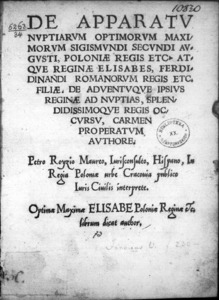 10830
DE APPARATV
NVPTIARVM OPTIMORVM MAXI/
MORVM SIGISMVNDI SECVNDI AV/
GVSTI, POLONIÆ REGIS ETC. AT/
QVE REGINÆ ELISABES, FERDI/
DINANDI ROMANORVM REGIS ETC.
FILIÆ. DE ADVENTVQVE IPSIVS
REGINÆ AD NVPTIAS, SPLEN/
DIDISSIMOQVE REGIS OC/
CVRSV, CARMEN
PROPERATVM
AVTHORE,
Petro Royzio Maureo, Iurisconsulto, Hispano, In
Regia Poloniæ urbe Cracouia publico
Iuris Ciuilis interprete.
Optimæ Maximæ ELISABE Poloniæ Reginæ &c.
librum dicat author.